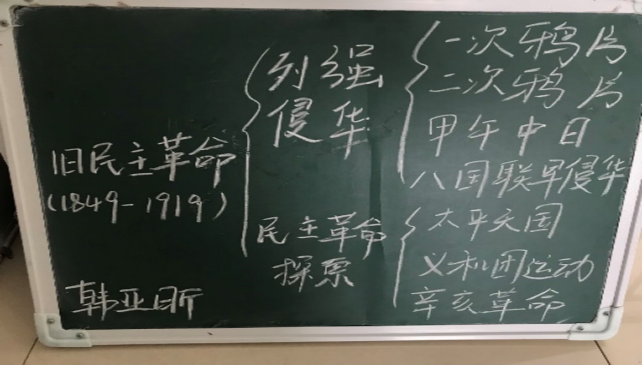 旧民主革命
(1849-1919)
列强
侵华
一次鸦片
二次鸦片
甲午中日
八国联军侵华
民主革命
探索
太平天国
义和团运动
辛亥革命
韩亚昕